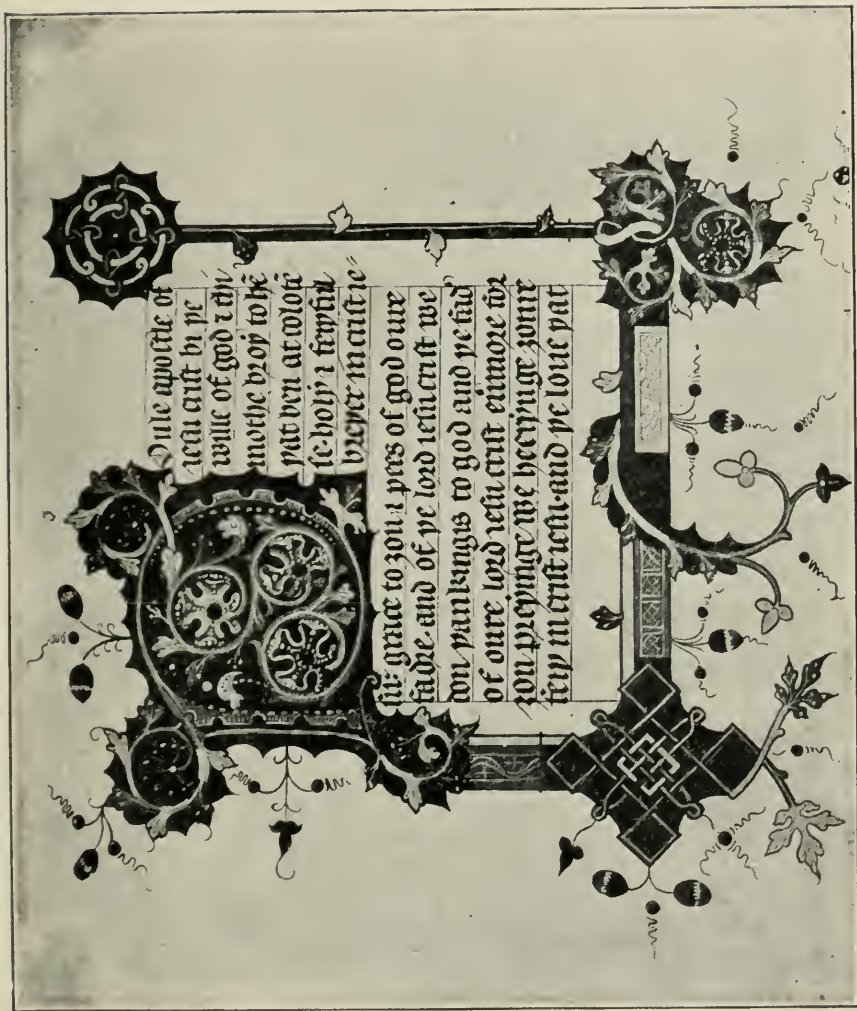 Poule apostle of
iesu crist bi þe
wille of god ⁊ thi
mothe broþ to hē
þat ben at colose
se·holy ⁊ feyþful
breþer in crist ie
su: grace to ȝou ⁊ pees of god oure
fadir. and of þe lord iesu crist we
don þankingis to god and þe fad
of oure lord iesu crist euirmore for
ȝou preyinge we heeringe ȝoure
feiþ in crist iesu. and þe loue þat